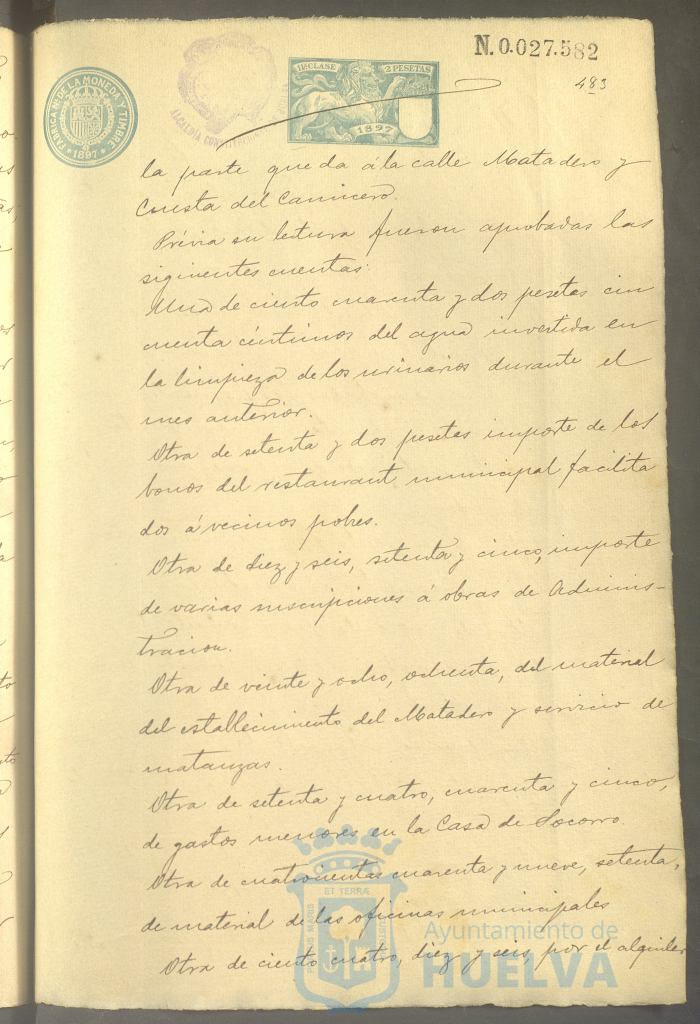 N. 0.027.582
483
11ª CLASE 2 PESETAS
1897
FABRICA Nal DE LA MONEDA Y TIMBRE
1897
ALCALDÍA
la parte que da á la calle Matadero y
Cuesta del Carnicero.
Prévia su lectura fueron aprobadas las
siguientes cuentas:
Una de ciento cuarenta y dos pesetas cin
cuenta céntimos del agua invertida en
la limpieza de los urinarios durante el
mes anterior.
Otra de setenta y dos pesetas importe de los
bonos del restaurant municipal facilita
dos á vecinos pobres.
Otra de diez y seis, setenta y cinco, importe
de varias suscripciones á obras de Adminis-
tracion.
Otra de veinte y ocho, ochenta, del material
del establecimiento del Matadero y servicio de
matanzas.
Otra de setenta y cuatro, cuarenta y cinco,
de gastos menores en la Casa de Socorro.
Otra de cuatrocientas cuarenta y nueve, setenta,
de material de las oficinas municipales
Otra de ciento cuatro, diez y seis, por el alquiler
PORTUS MARIS
ET TERRÆ
CUSTODIA
Ayuntamiento de
HUELVA